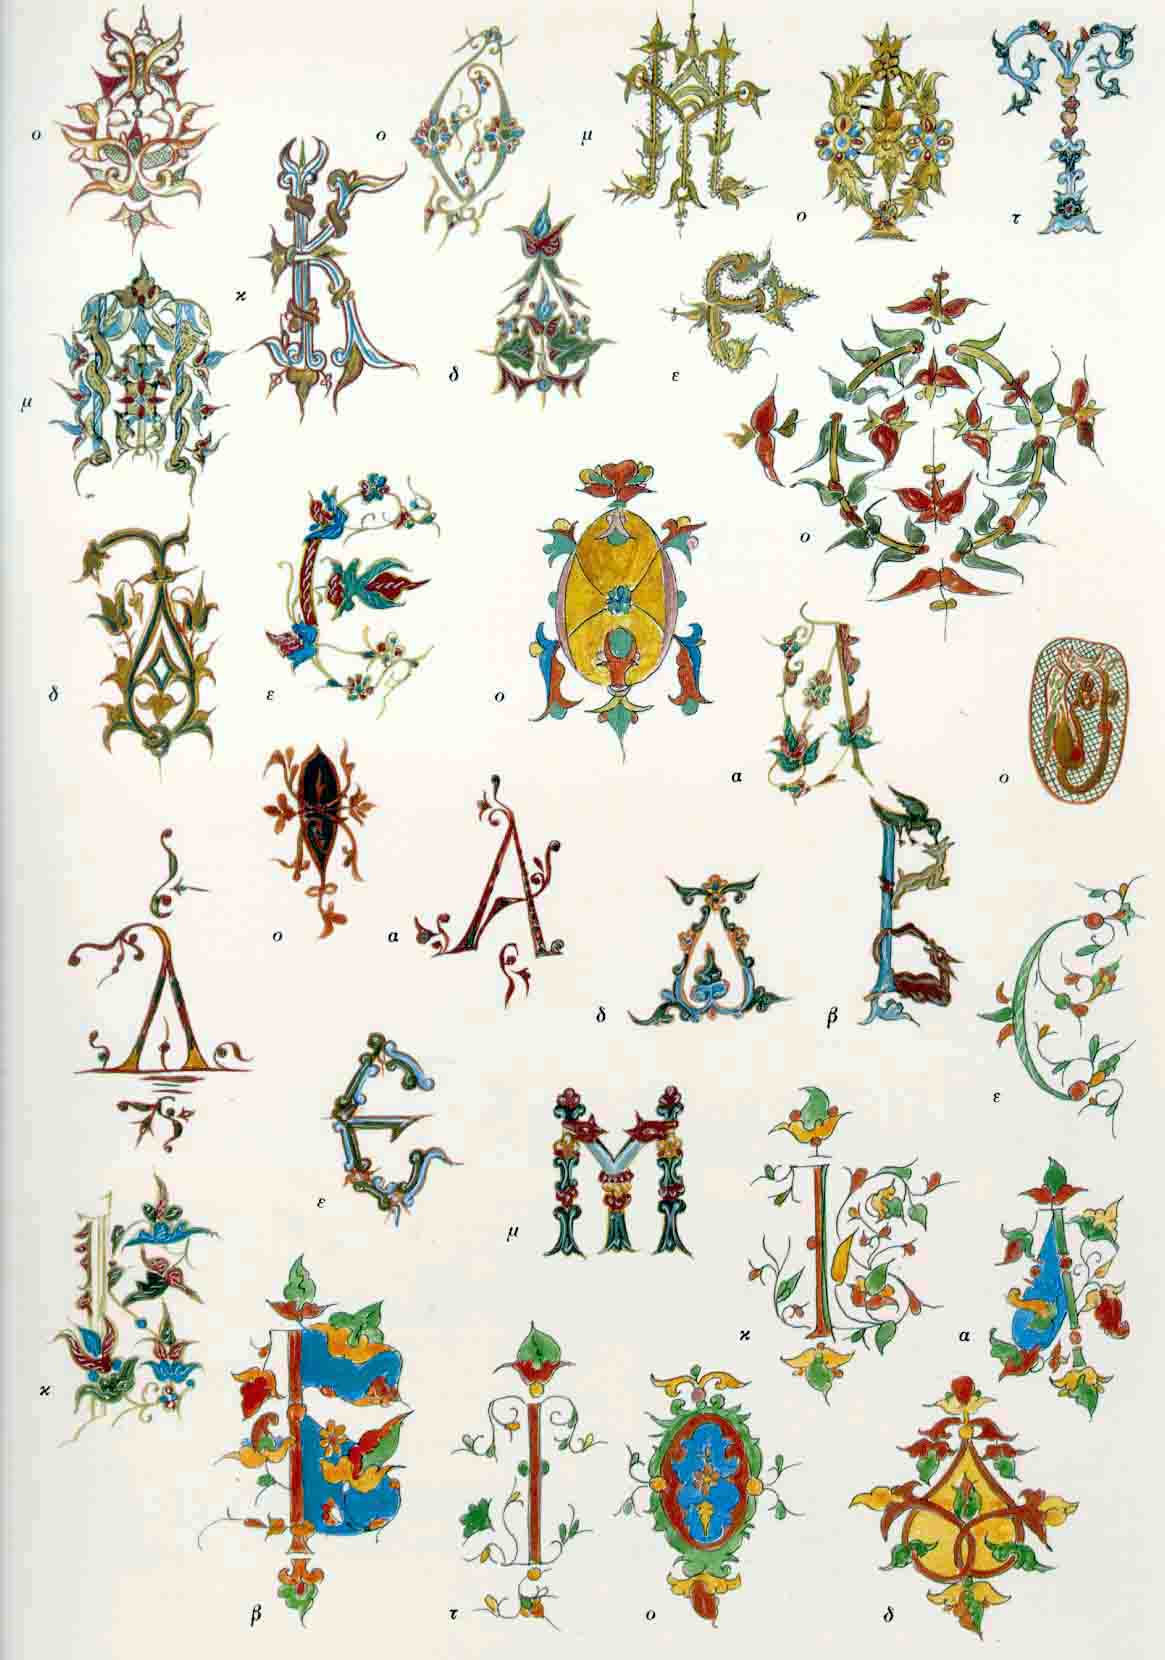 ο ο μ ο τ
ϰ
μ δ ε
ο
δ ε ο
α ο
ο α
δ β
ε
ε μ
ϰ α
ϰ
β τ ο δ